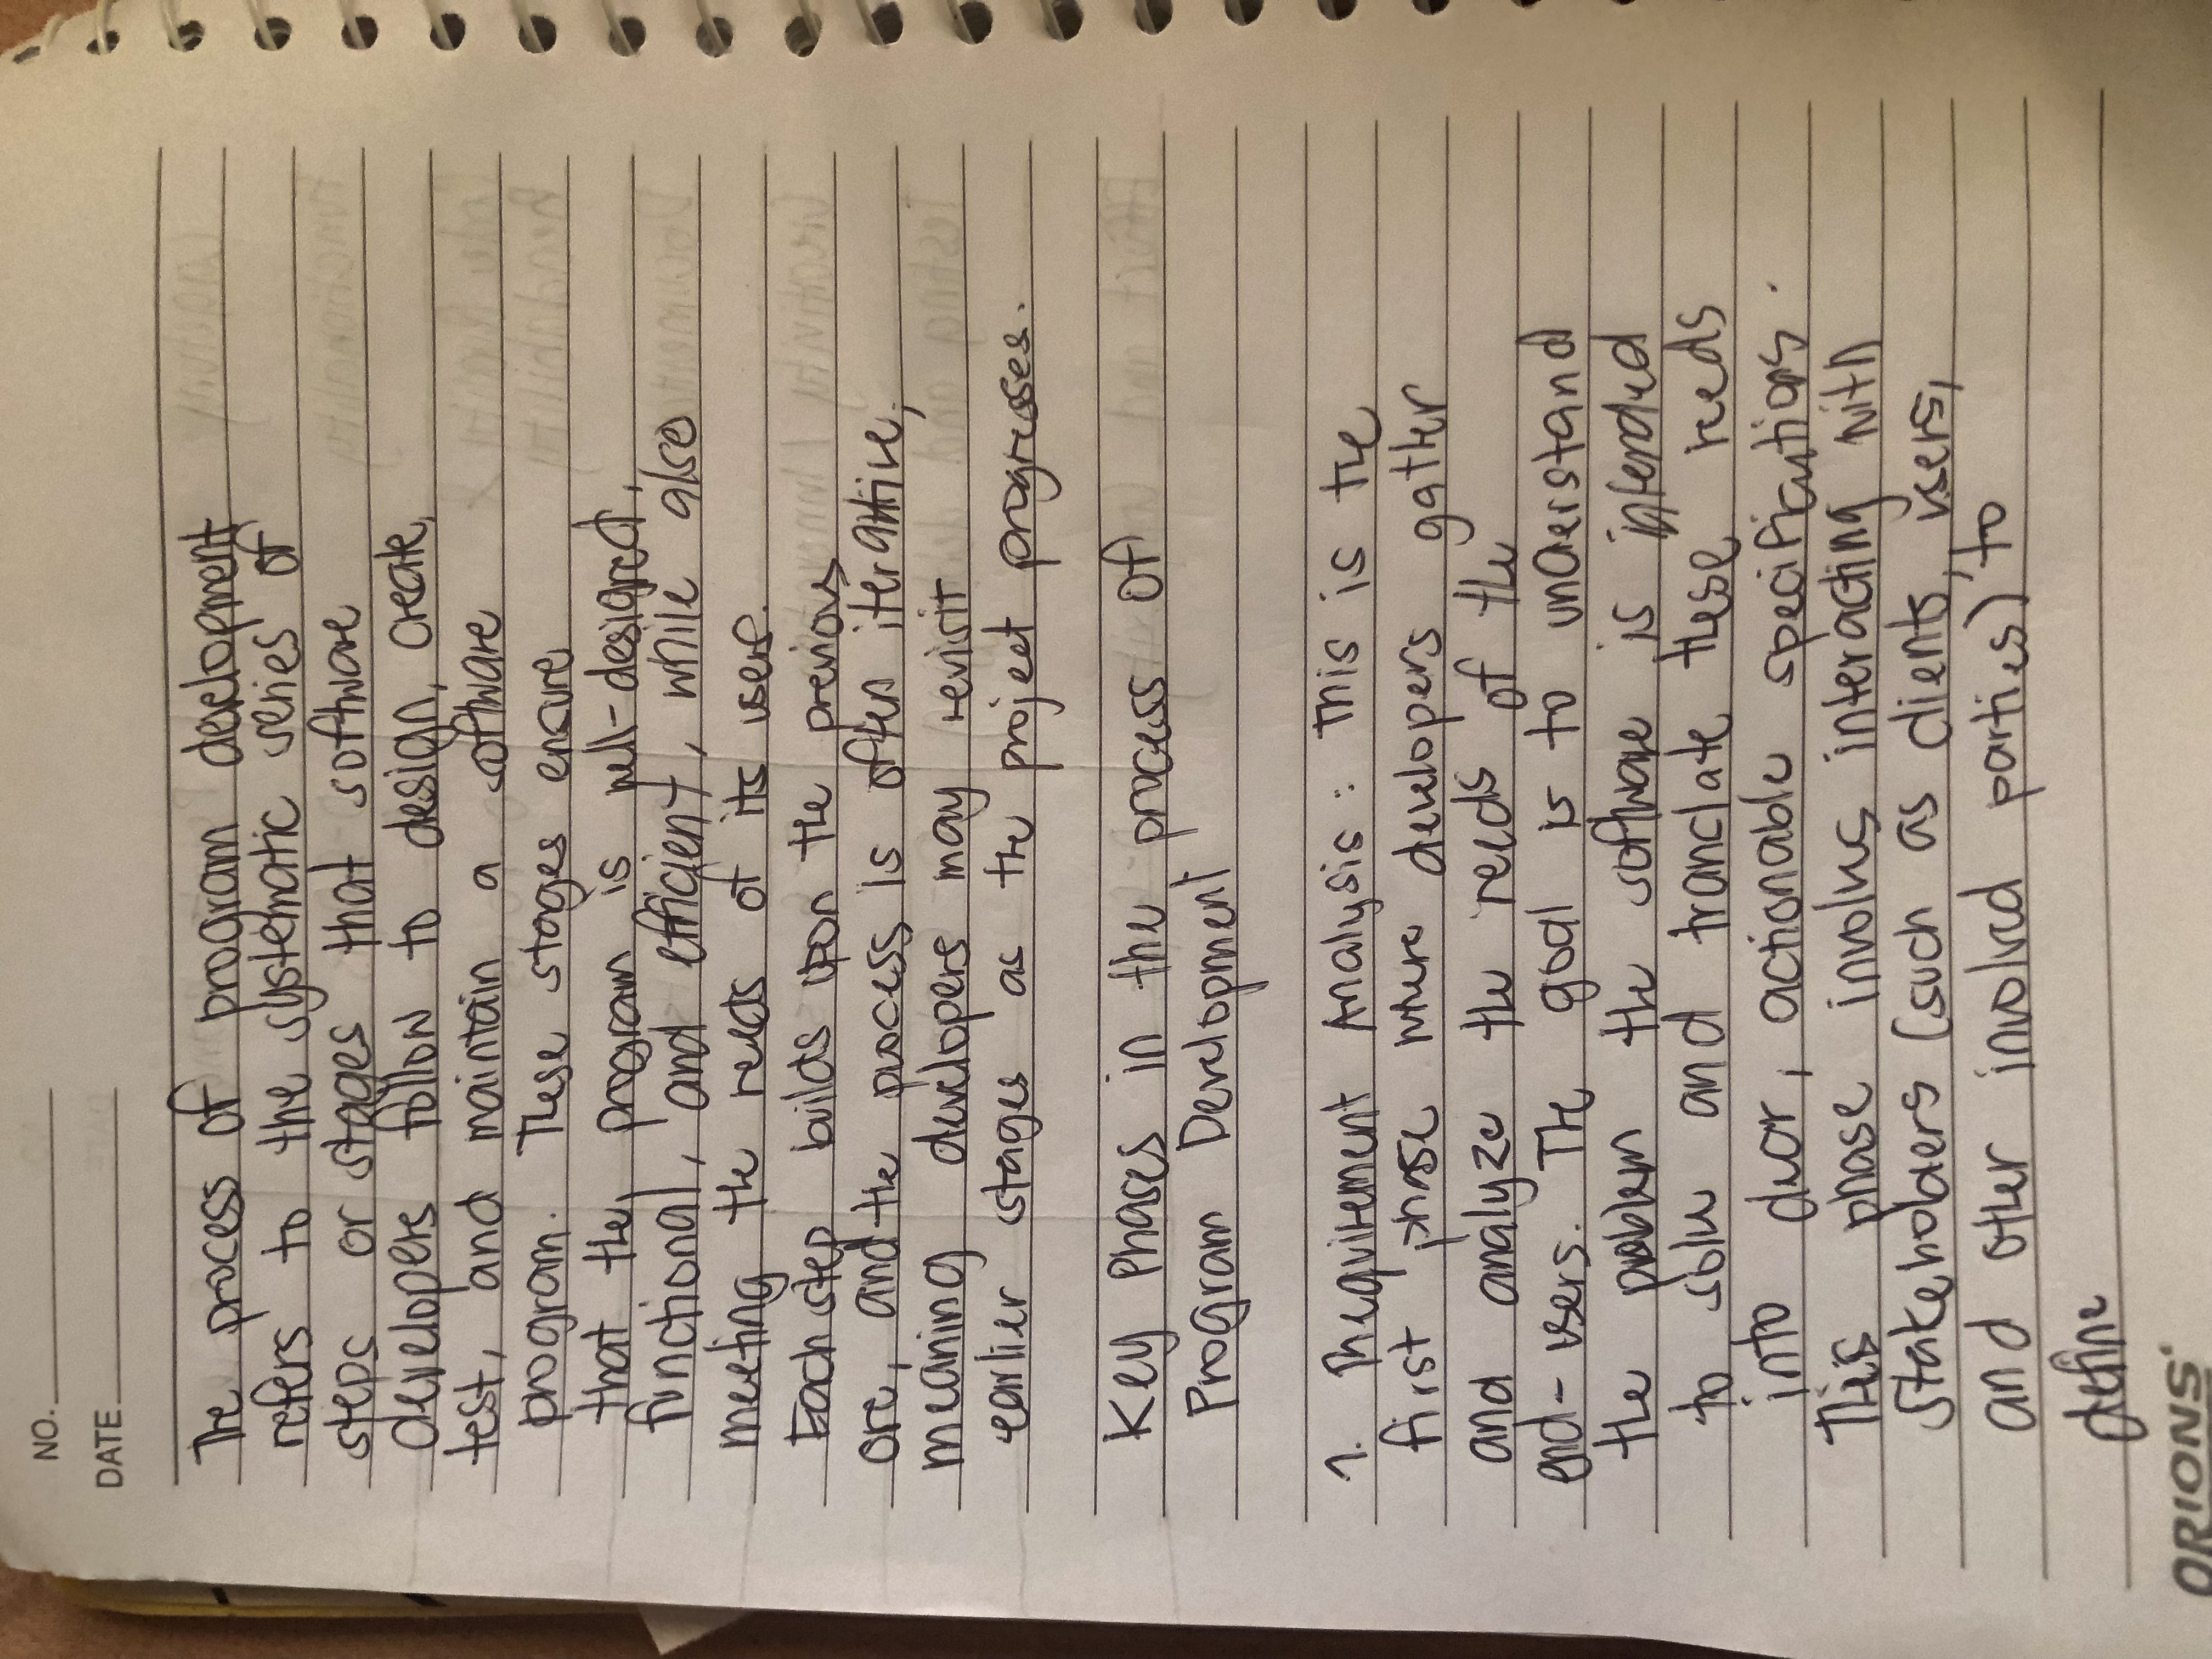 NO.
DATE
The process of program development
refers to the systematic series of
steps or stages that software
developers follow to design, create,
test, and maintain a software
program. These stages ensure
that the program is well-designed,
functional, and efficient, while also
meeting the needs of its users.
Each step builds upon the previous
one, and the process is often iterative,
meaning developers may revisit
earlier stages as the project progresses.
Key Phases in the process of
Program Development
1. Requirement Analysis: This is the
first phase where developers gather
and analyze the needs of the
end-users. The goal is to understand
the problem the software is intended
to solve and translate these needs
into clear, actionable specifications.
This phase involves interacting with
stakeholders (such as clients, users,
and other involved parties) to
define
ORIONS